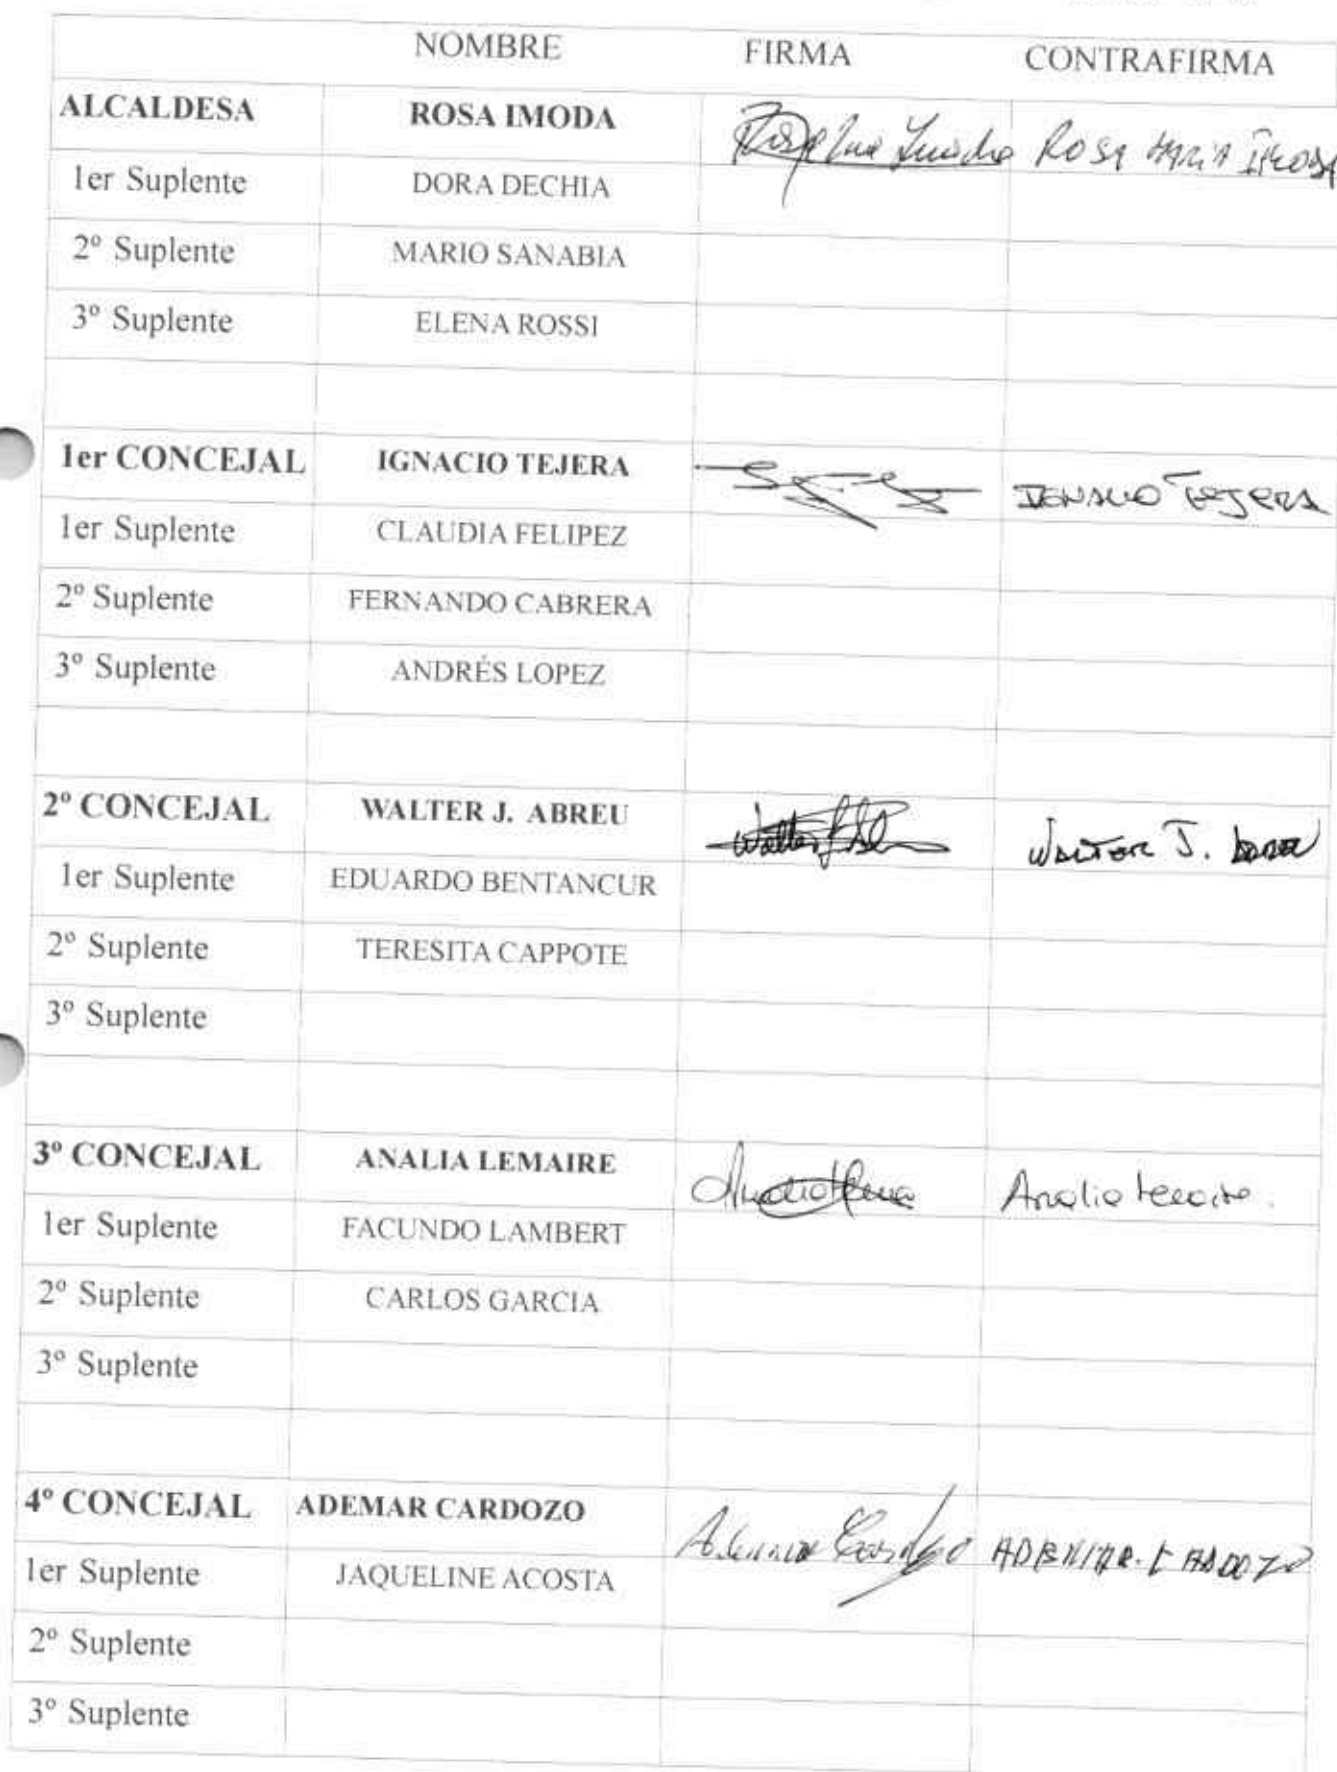 NOMBRE FIRMA CONTRAFIRMA
ALCALDESA ROSA IMODA ROSA MARIA IMODA
1er Suplente DORA DECHIA
2º Suplente MARIO SANABIA
3º Suplente ELENA ROSSI
1er CONCEJAL IGNACIO TEJERA IGNACIO TEJERA
1er Suplente CLAUDIA FELIPEZ
2º Suplente FERNANDO CABRERA
3º Suplente ANDRÉS LOPEZ
2º CONCEJAL WALTER J. ABREU Walter WALTER J. ABREU
1er Suplente EDUARDO BENTANCUR
2º Suplente TERESITA CAPPOTE
3º Suplente
3º CONCEJAL ANALIA LEMAIRE Analia Lemaire.
1er Suplente FACUNDO LAMBERT
2º Suplente CARLOS GARCIA
3º Suplente
4º CONCEJAL ADEMAR CARDOZO Ademar Cardozo ADEMAR CARDOZO
1er Suplente JAQUELINE ACOSTA
2º Suplente
3º Suplente